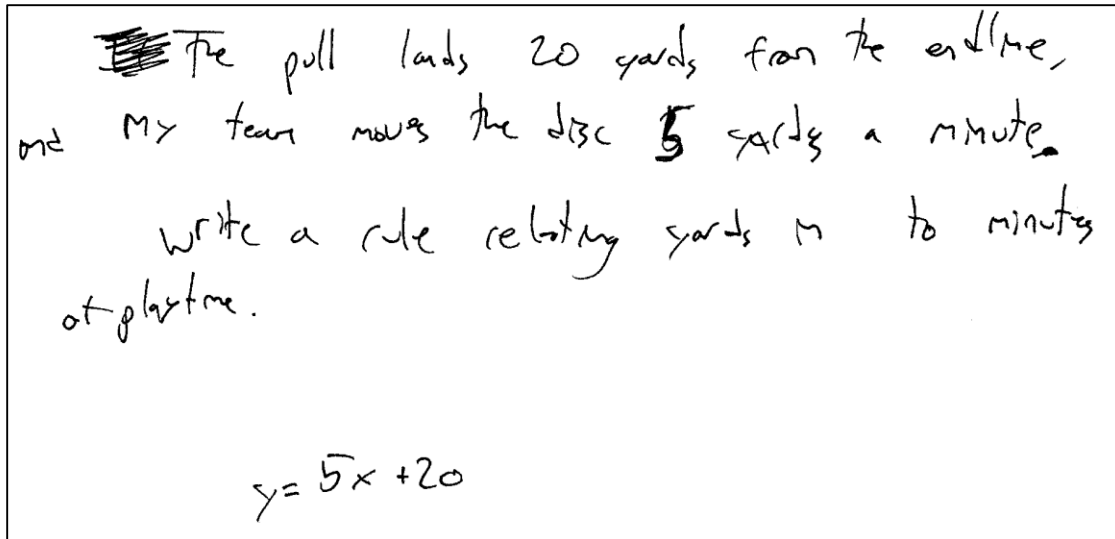 The pull lands 20 yards from the endline,
and My team moves the disc 5 yards a minute.
write a rule relating yards in to minutes
of playtime.
y = 5x + 20